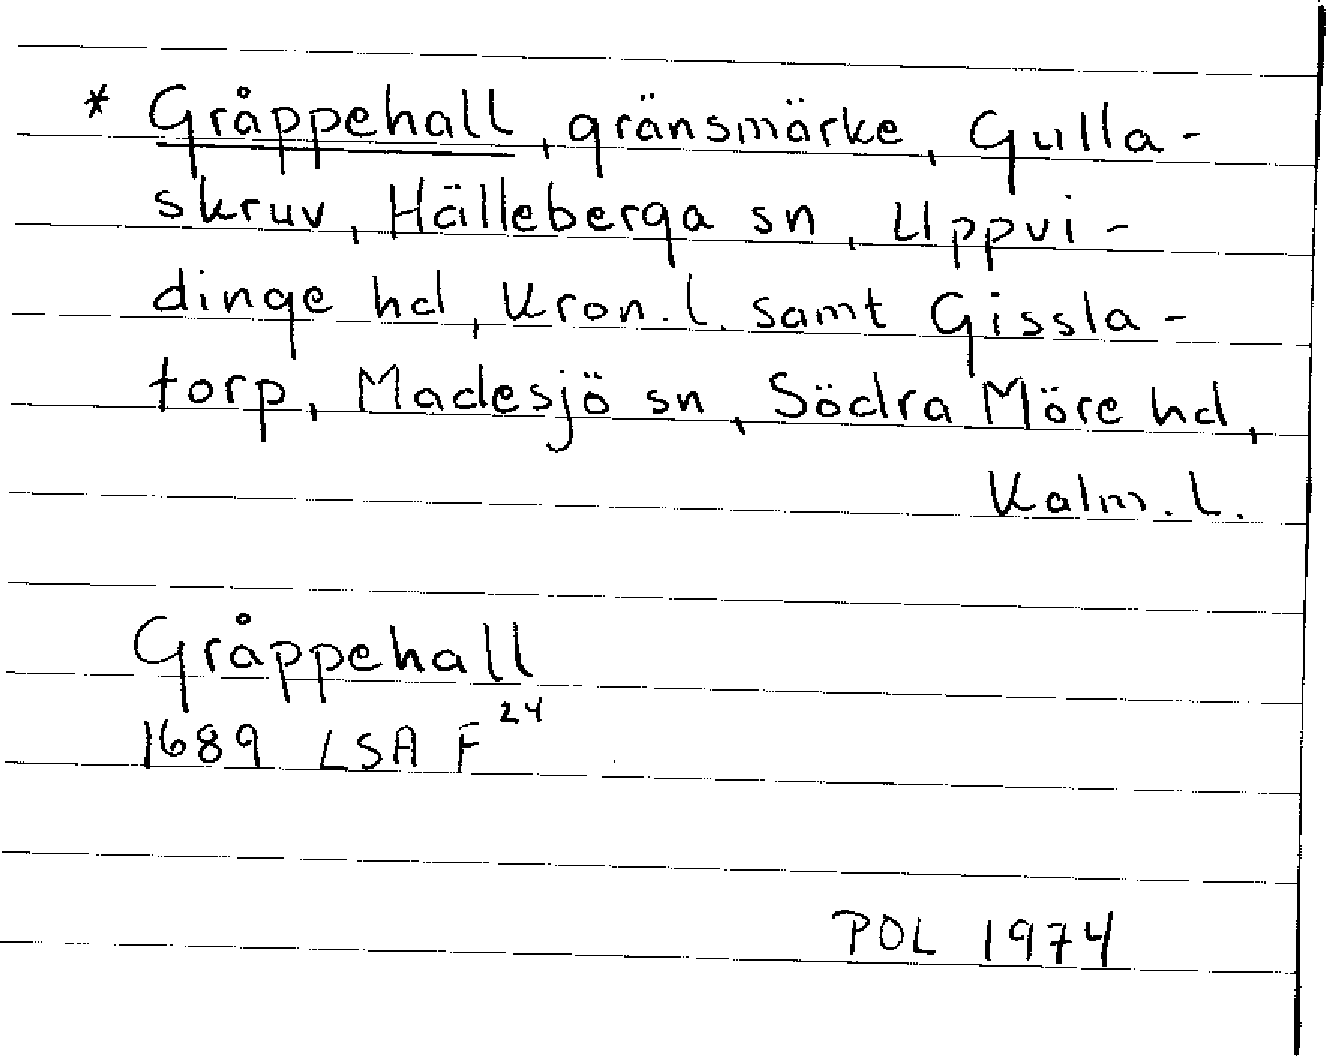 * Gråppehall, gränsmärke, Gulla-
skruv, Hälleberga sn, Uppvi-
dinge hd, Kron. l. samt Gissla-
torp, Madesjö sn, Södra Möre hd,
Kalm. l.
Gråppehall
1689 LSA F 24
POL 1974